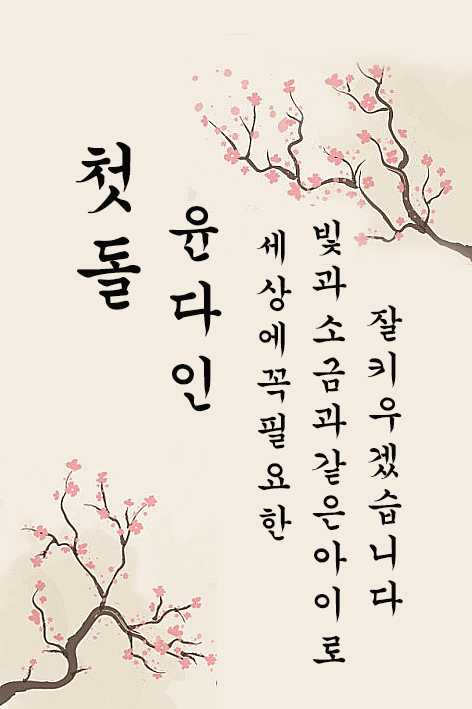 첫돌
윤다인
세상에꼭필요한
빛과소금과같은아이로
잘키우겠습니다